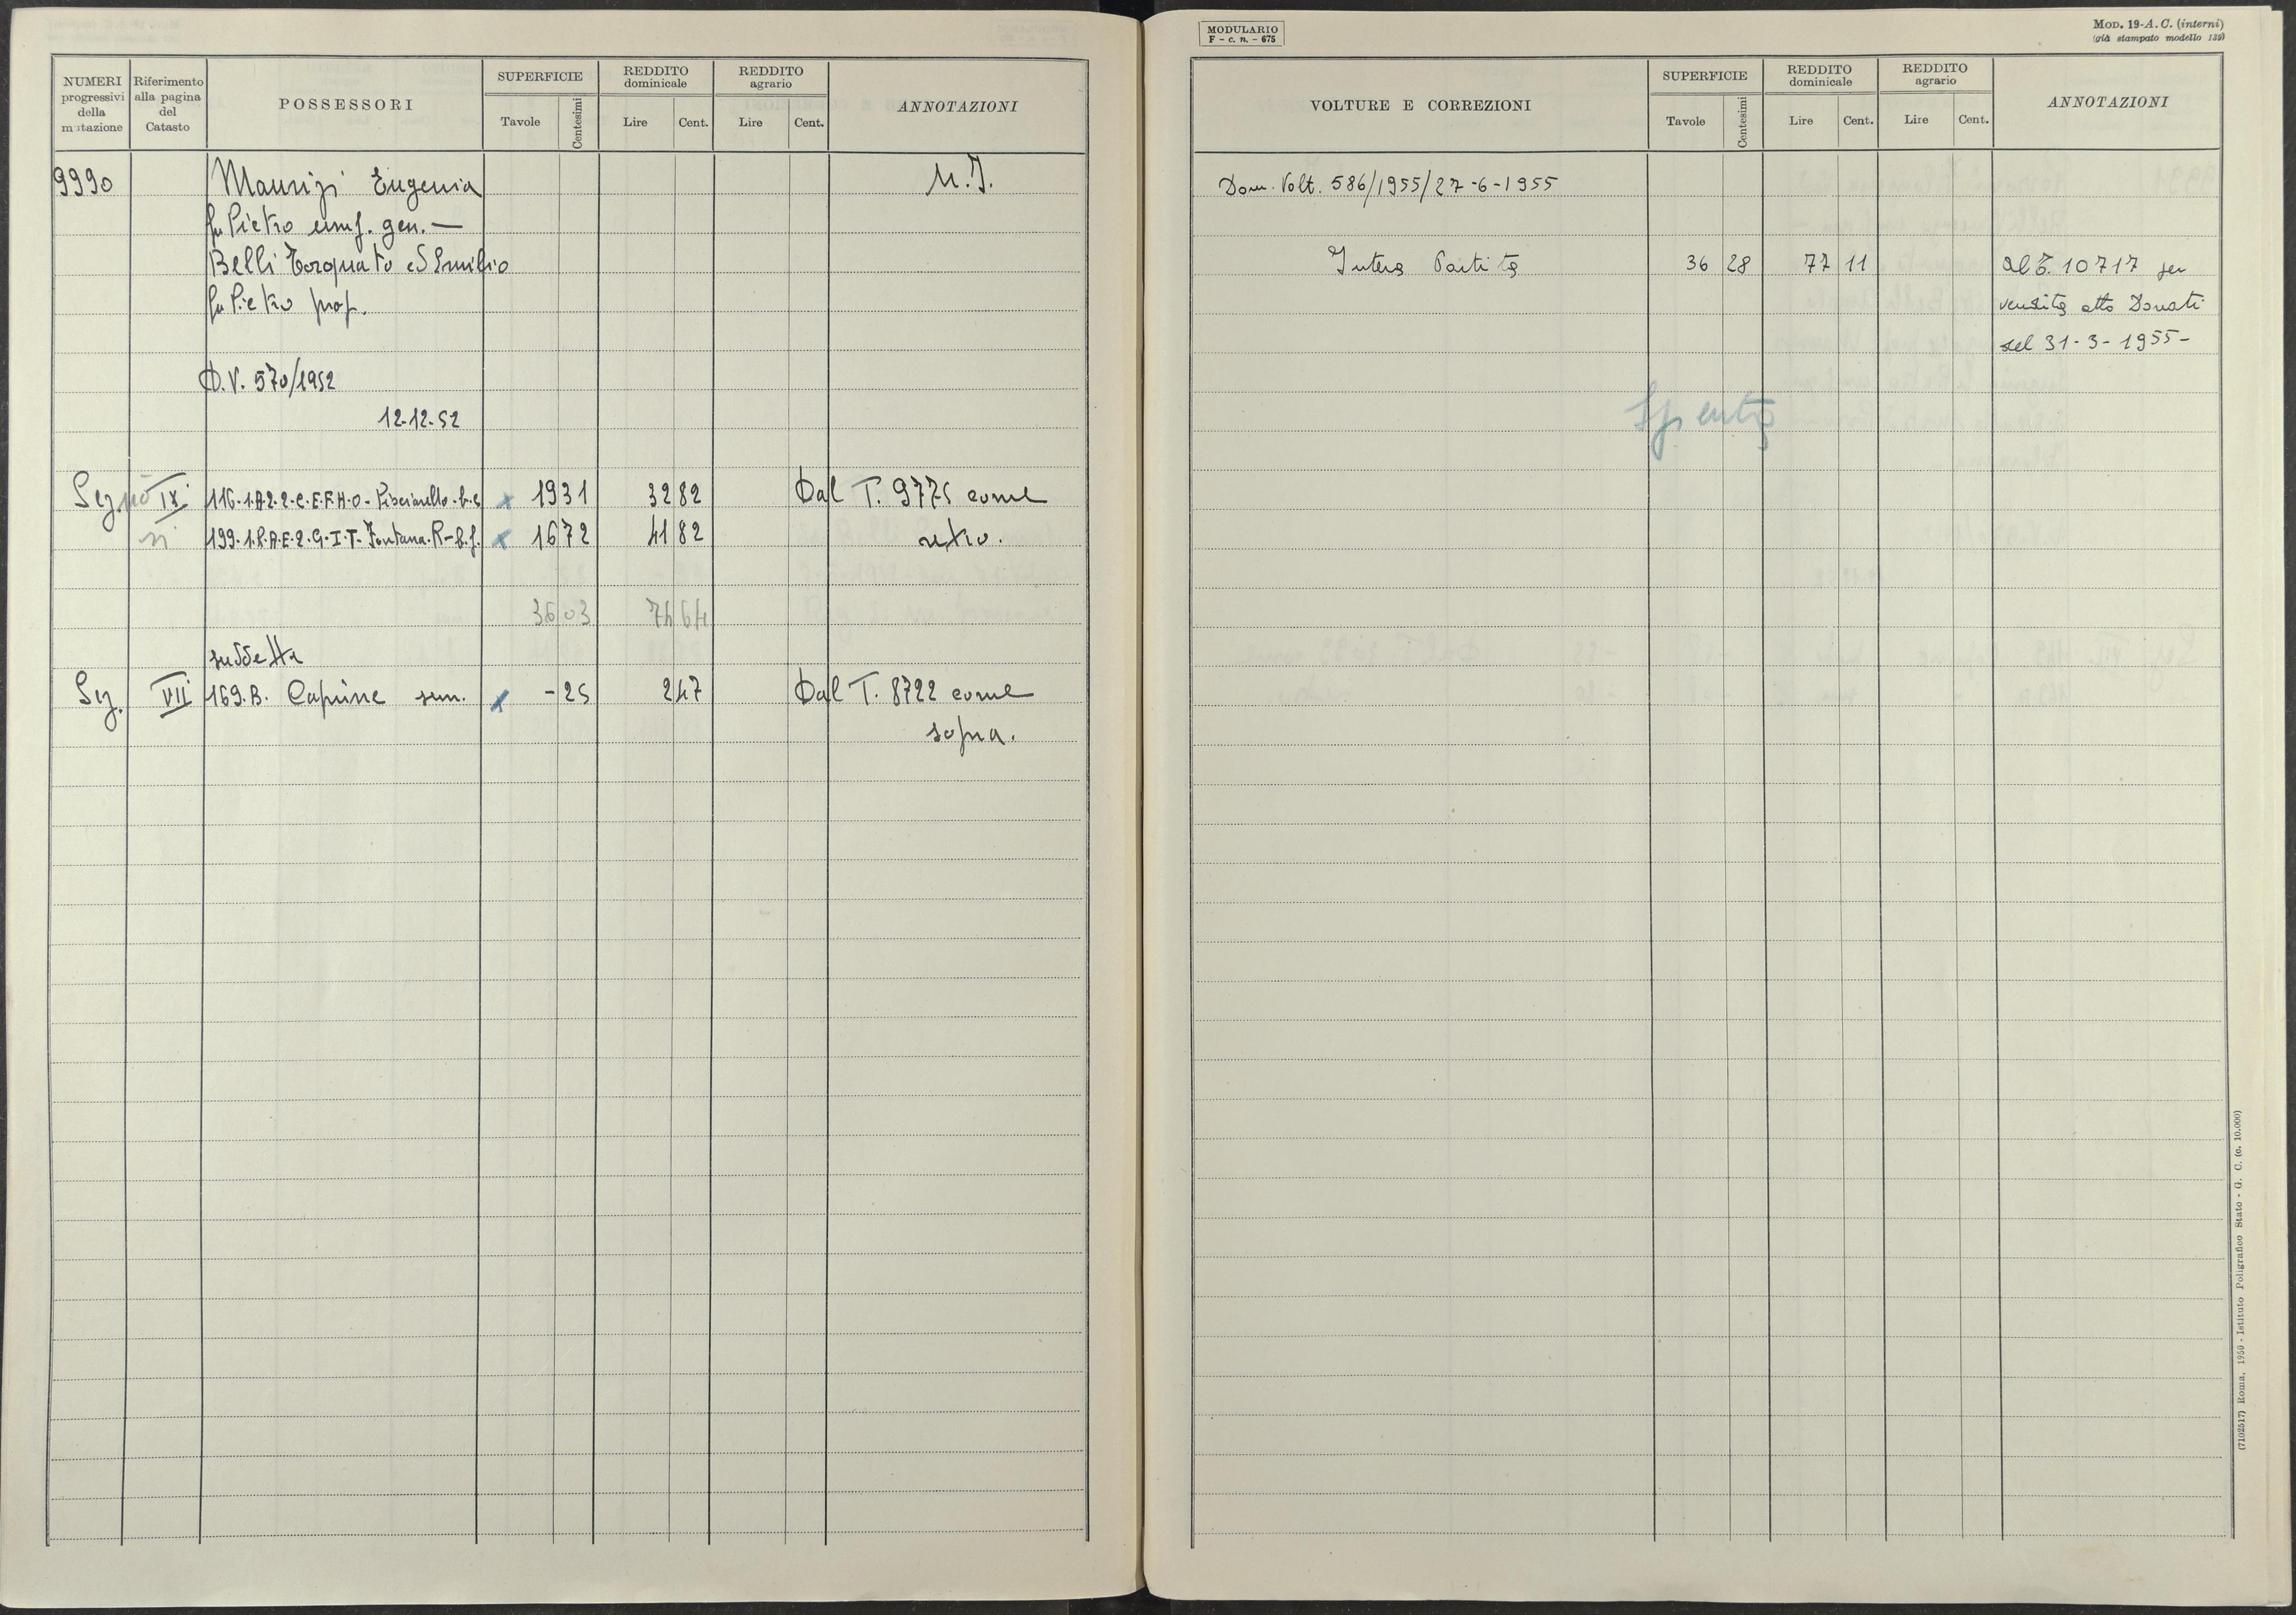 NUMERI progressivi della mutazione | Riferimento alla pagina del Catasto | POSSESSORI | SUPERFICIE Tavole Centesimi | REDDITO dominicale Lire Cent. | REDDITO agrario Lire Cent. | ANNOTAZIONI
9990 Maurizi Eugenia M.I.
fu Pietro usuf. gen. —
Belli Torquato ed Emilio
fu Pietro prop.
D.V. 570/1952
12-12-52
Sez. IX 116-1-A2-2-C-E-F-H-O- x 19 31 32 82 Dal T. 9775 come
VI 199-1- Fontana x 16 72 41 82 retro.
36 03 74 64
suddetta
Sez. VII 169.B. Caprine sem. x -25 2 47 Dal T. 8722 come
sopra.
MODULARIO
F - c. n. - 675
MOD. 19-A. C. (interni)
(già stampato modello 139)
VOLTURE E CORREZIONI | SUPERFICIE Tavole Centesimi | REDDITO dominicale Lire Cent. | REDDITO agrario Lire Cent. | ANNOTAZIONI
Dom. Volt. 586/1955/27-6-1955
Intera Partita 36 28 77 11 al T. 10717 per
vendita atto Donati
del 31-3-1955-
Spenta
(7102517) Roma, 1950 - Istituto Poligrafico Stato - G. C. (c. 10.000)